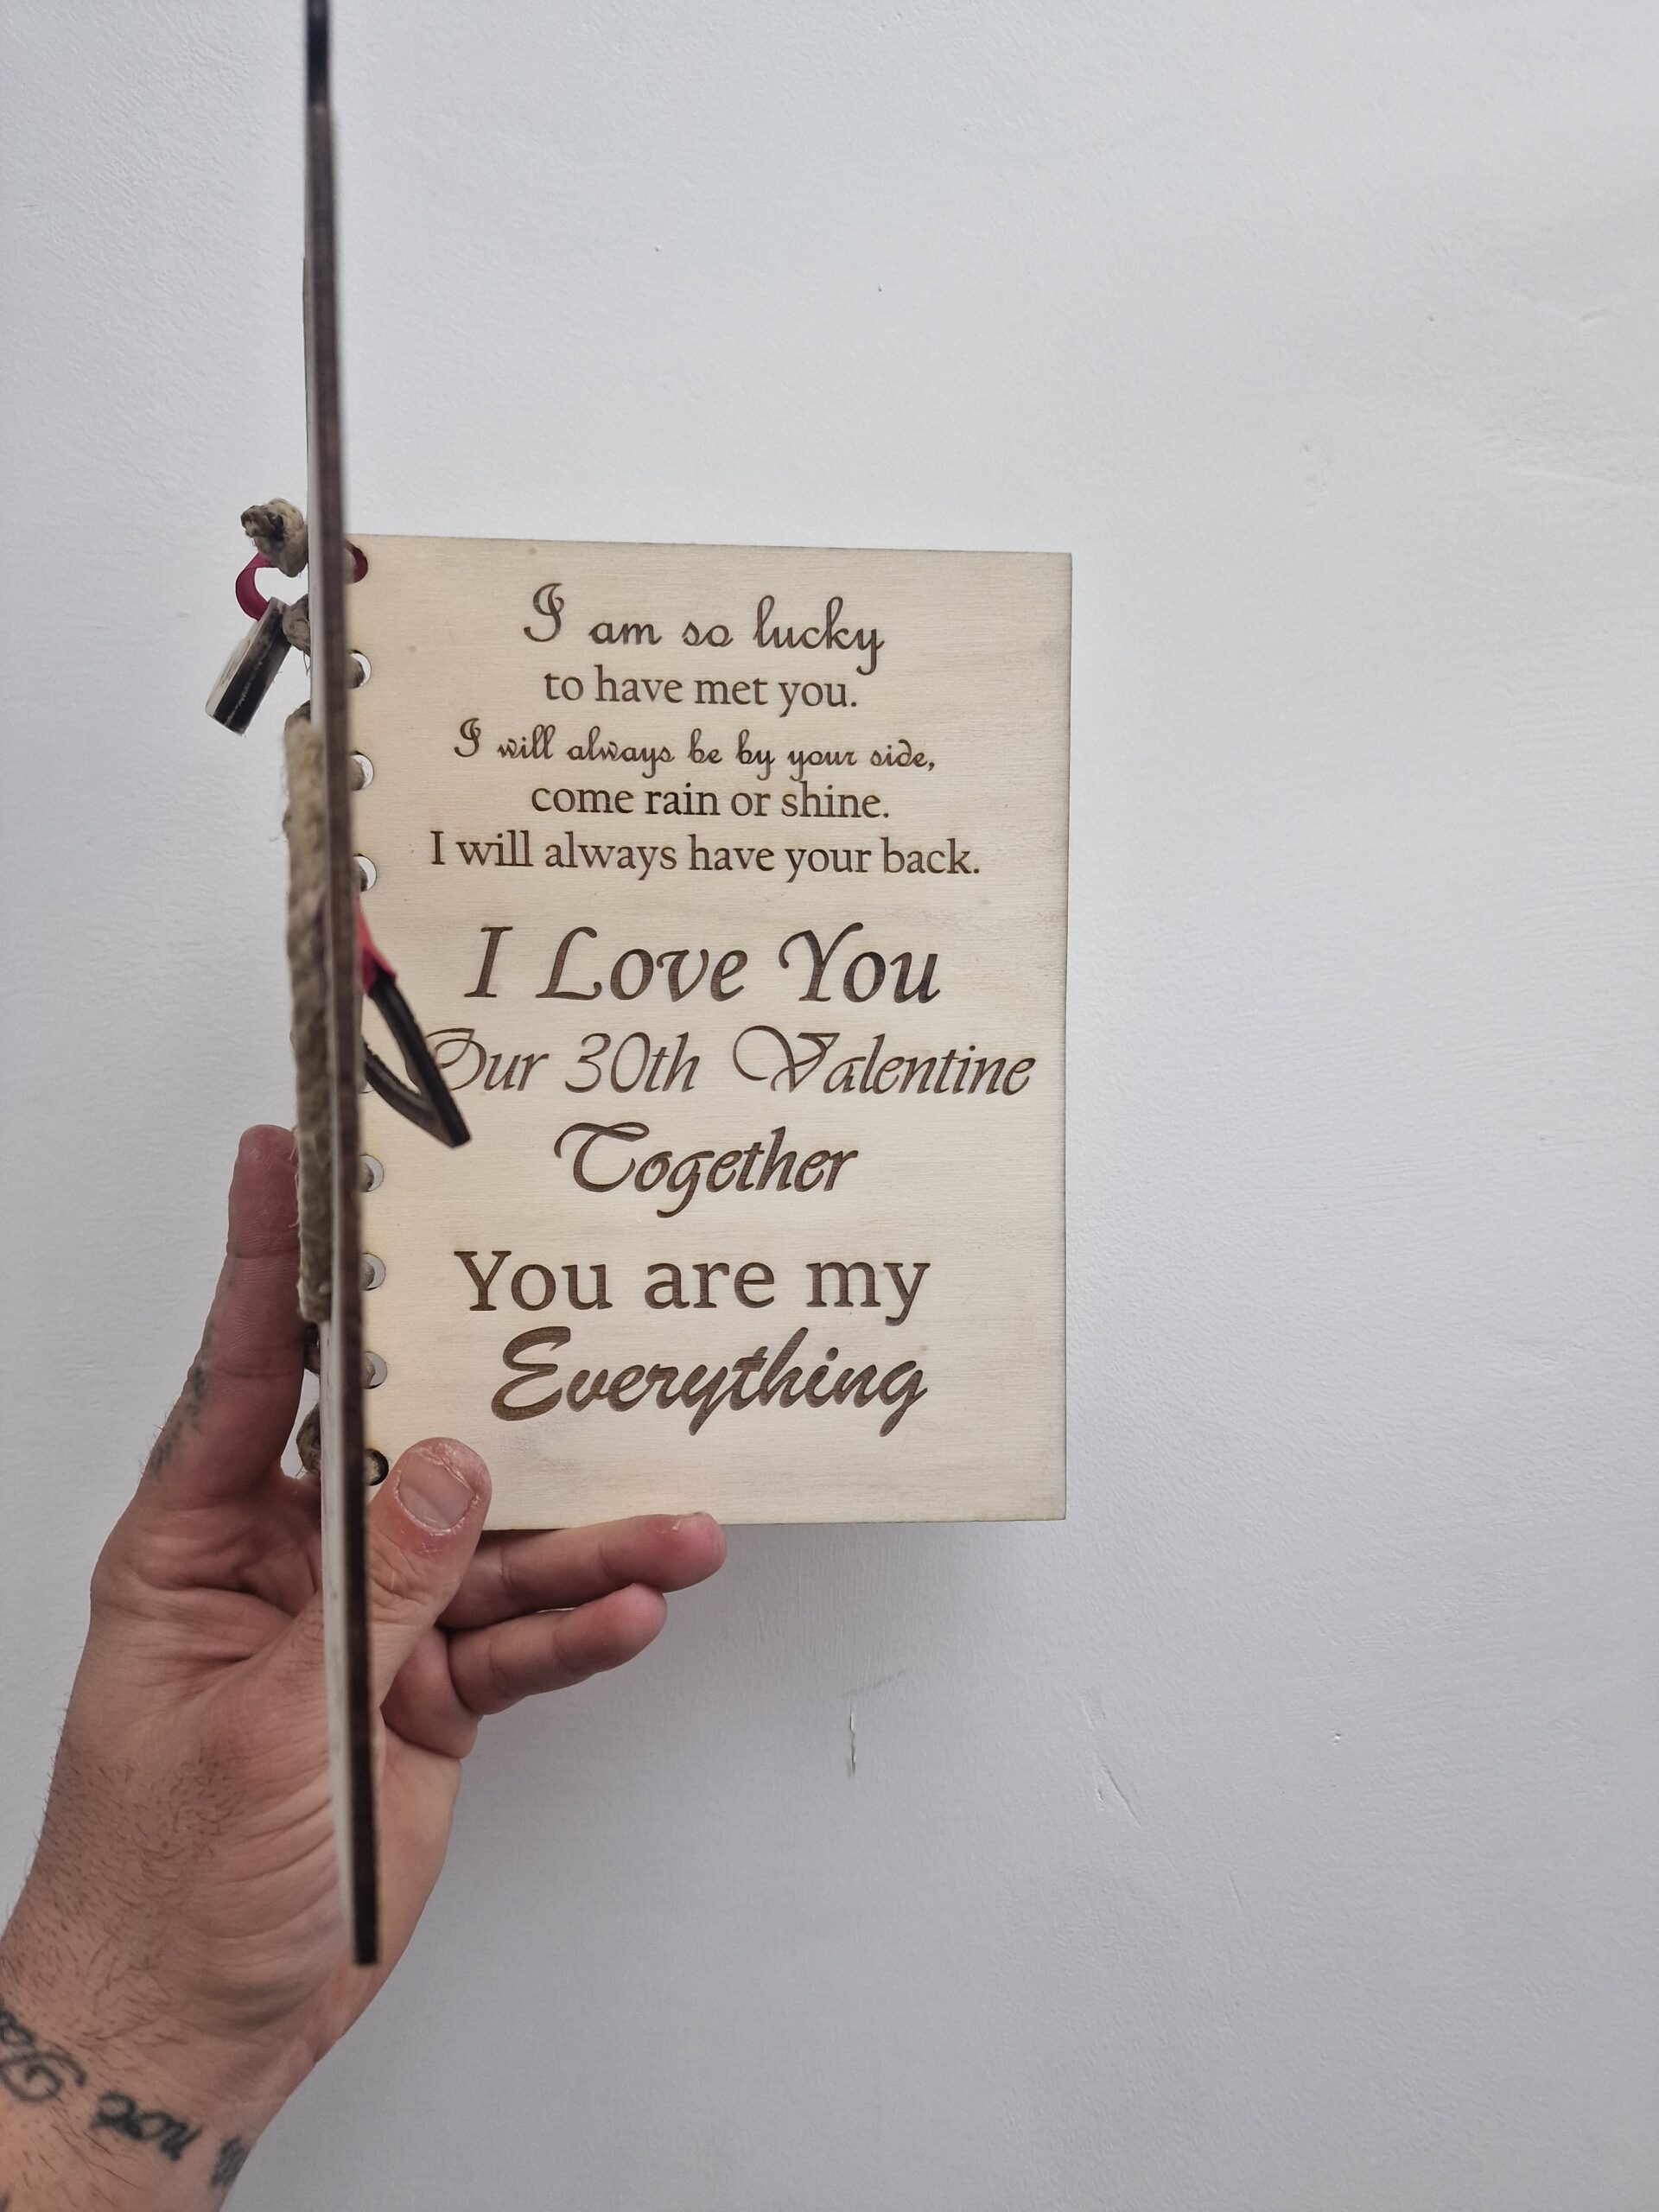 I am so lucky
to have met you.
I will always be by your side,
come rain or shine.
I will always have your back.
I Love You
Our 30th Valentine
Together
You are my
Everything
not